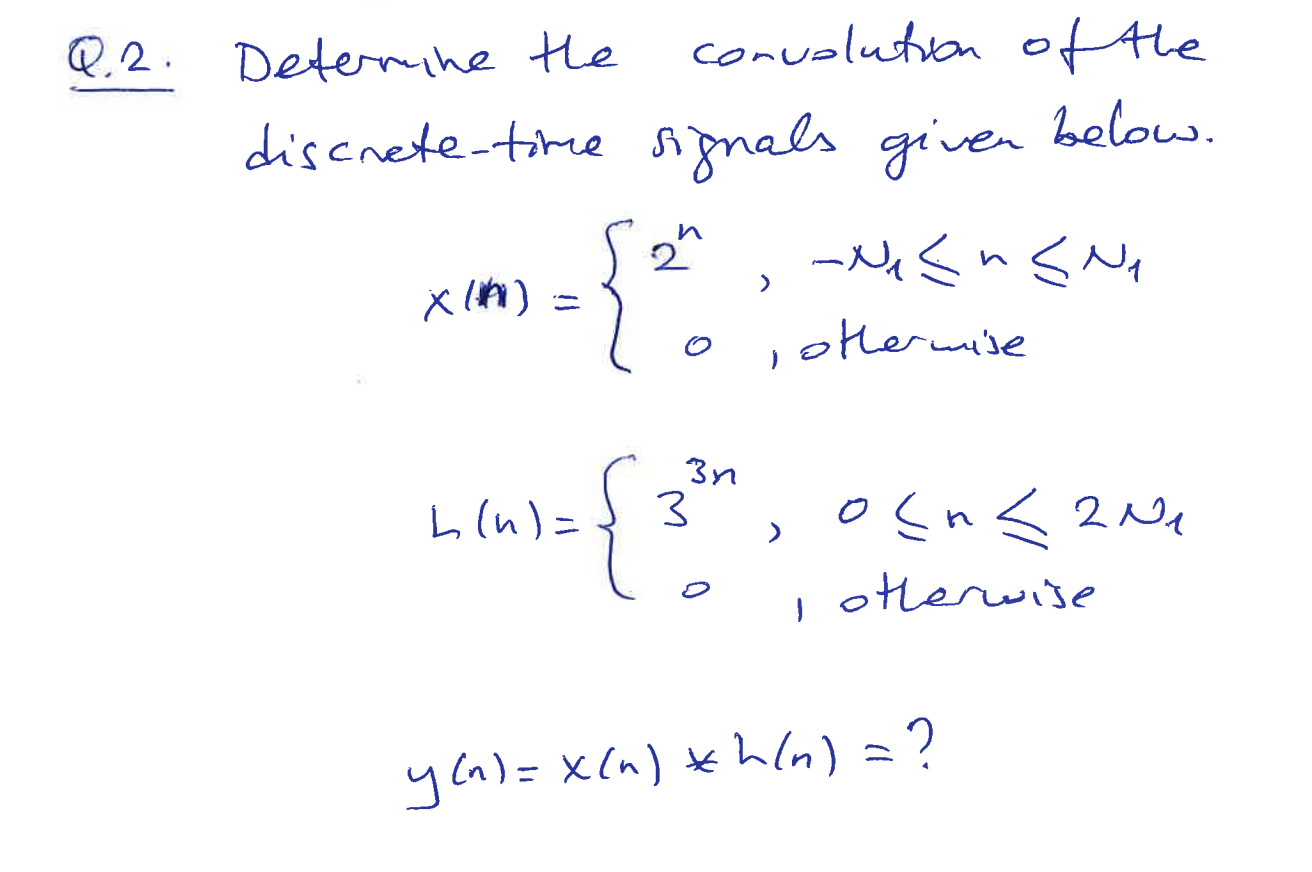 Q.2. Determine the convolution of the
discrete-time signals given below.
x(n) = { 2^n , -N₁ ≤ n ≤ N₁
0 , otherwise
h(n) = { 3^{3n} , 0 ≤ n ≤ 2N₁
0 , otherwise
y(n) = x(n) * h(n) = ?